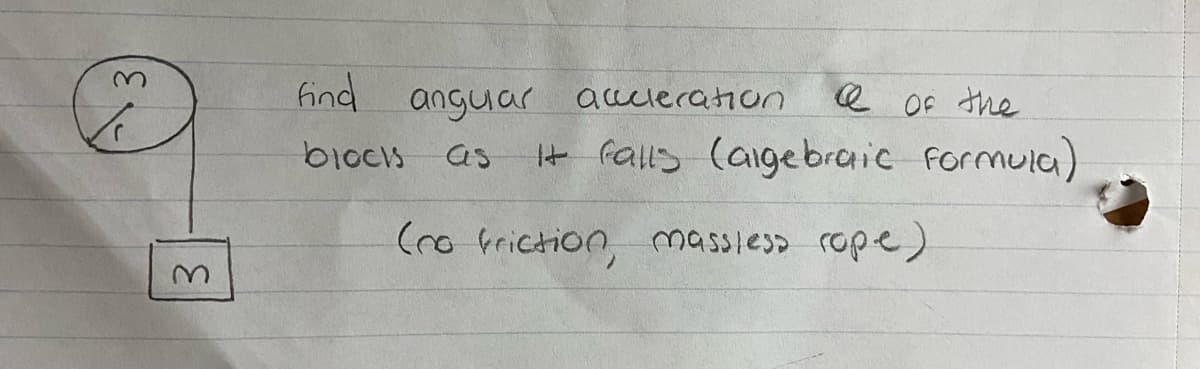 m
r
find angular acceleration a of the
block as it falls (algebraic formula)
(no friction, massless rope)
m